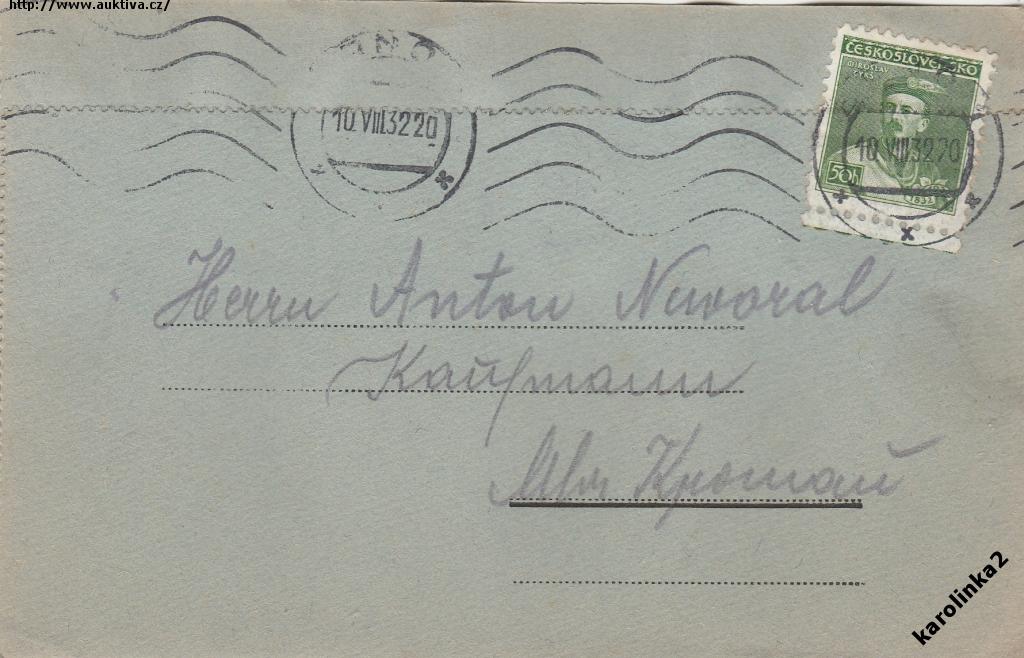 http://www.auktiva.cz/
ČESKOSLOVENSKO
MIROSLAV
TYRŠ
10.VIII.32 20
10.VIII.32 20
50h
1832
Herrn Anton Navoral
Kaufmann
Mhr Kromau
karolinka2